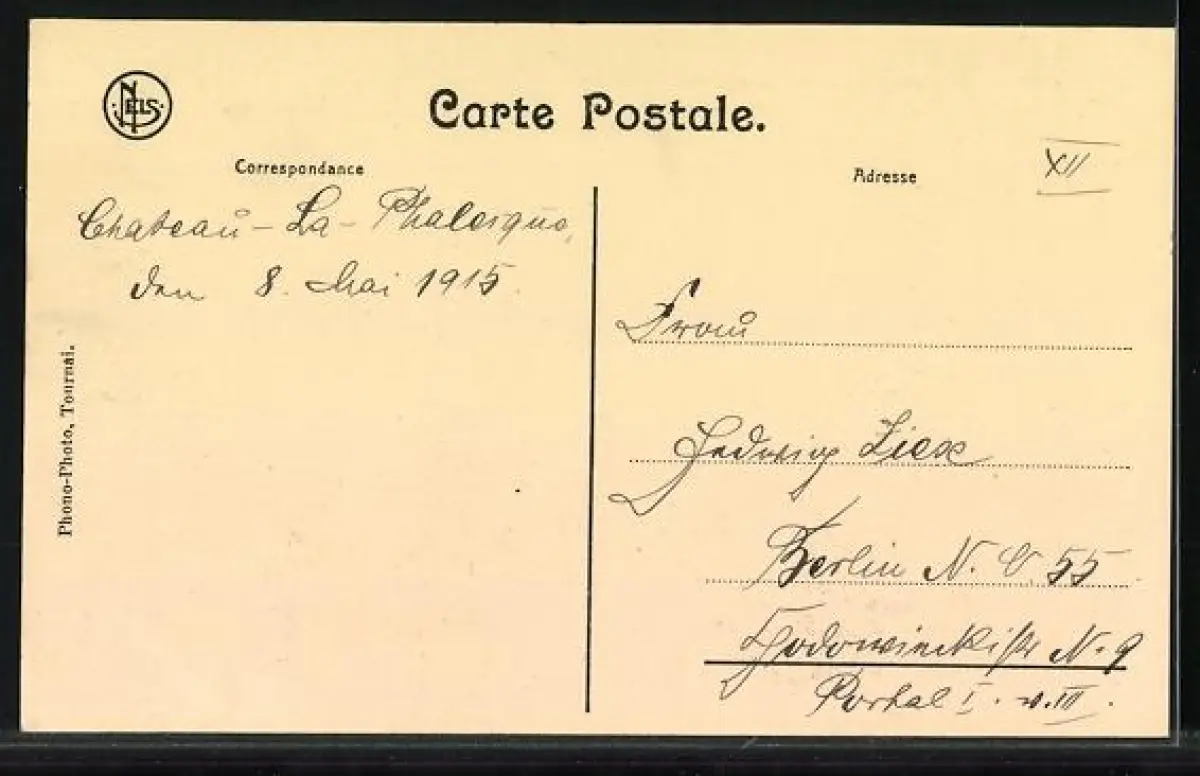 NELS
Carte Postale.
Correspondance
Adresse
XII
Chateau - La - Phalesque,
den 8. Mai 1915.
Frau
Hedwig Liese
Berlin N. O. 55
N. 9
Portal I. v. III.
Phono-Photo, Tournai.